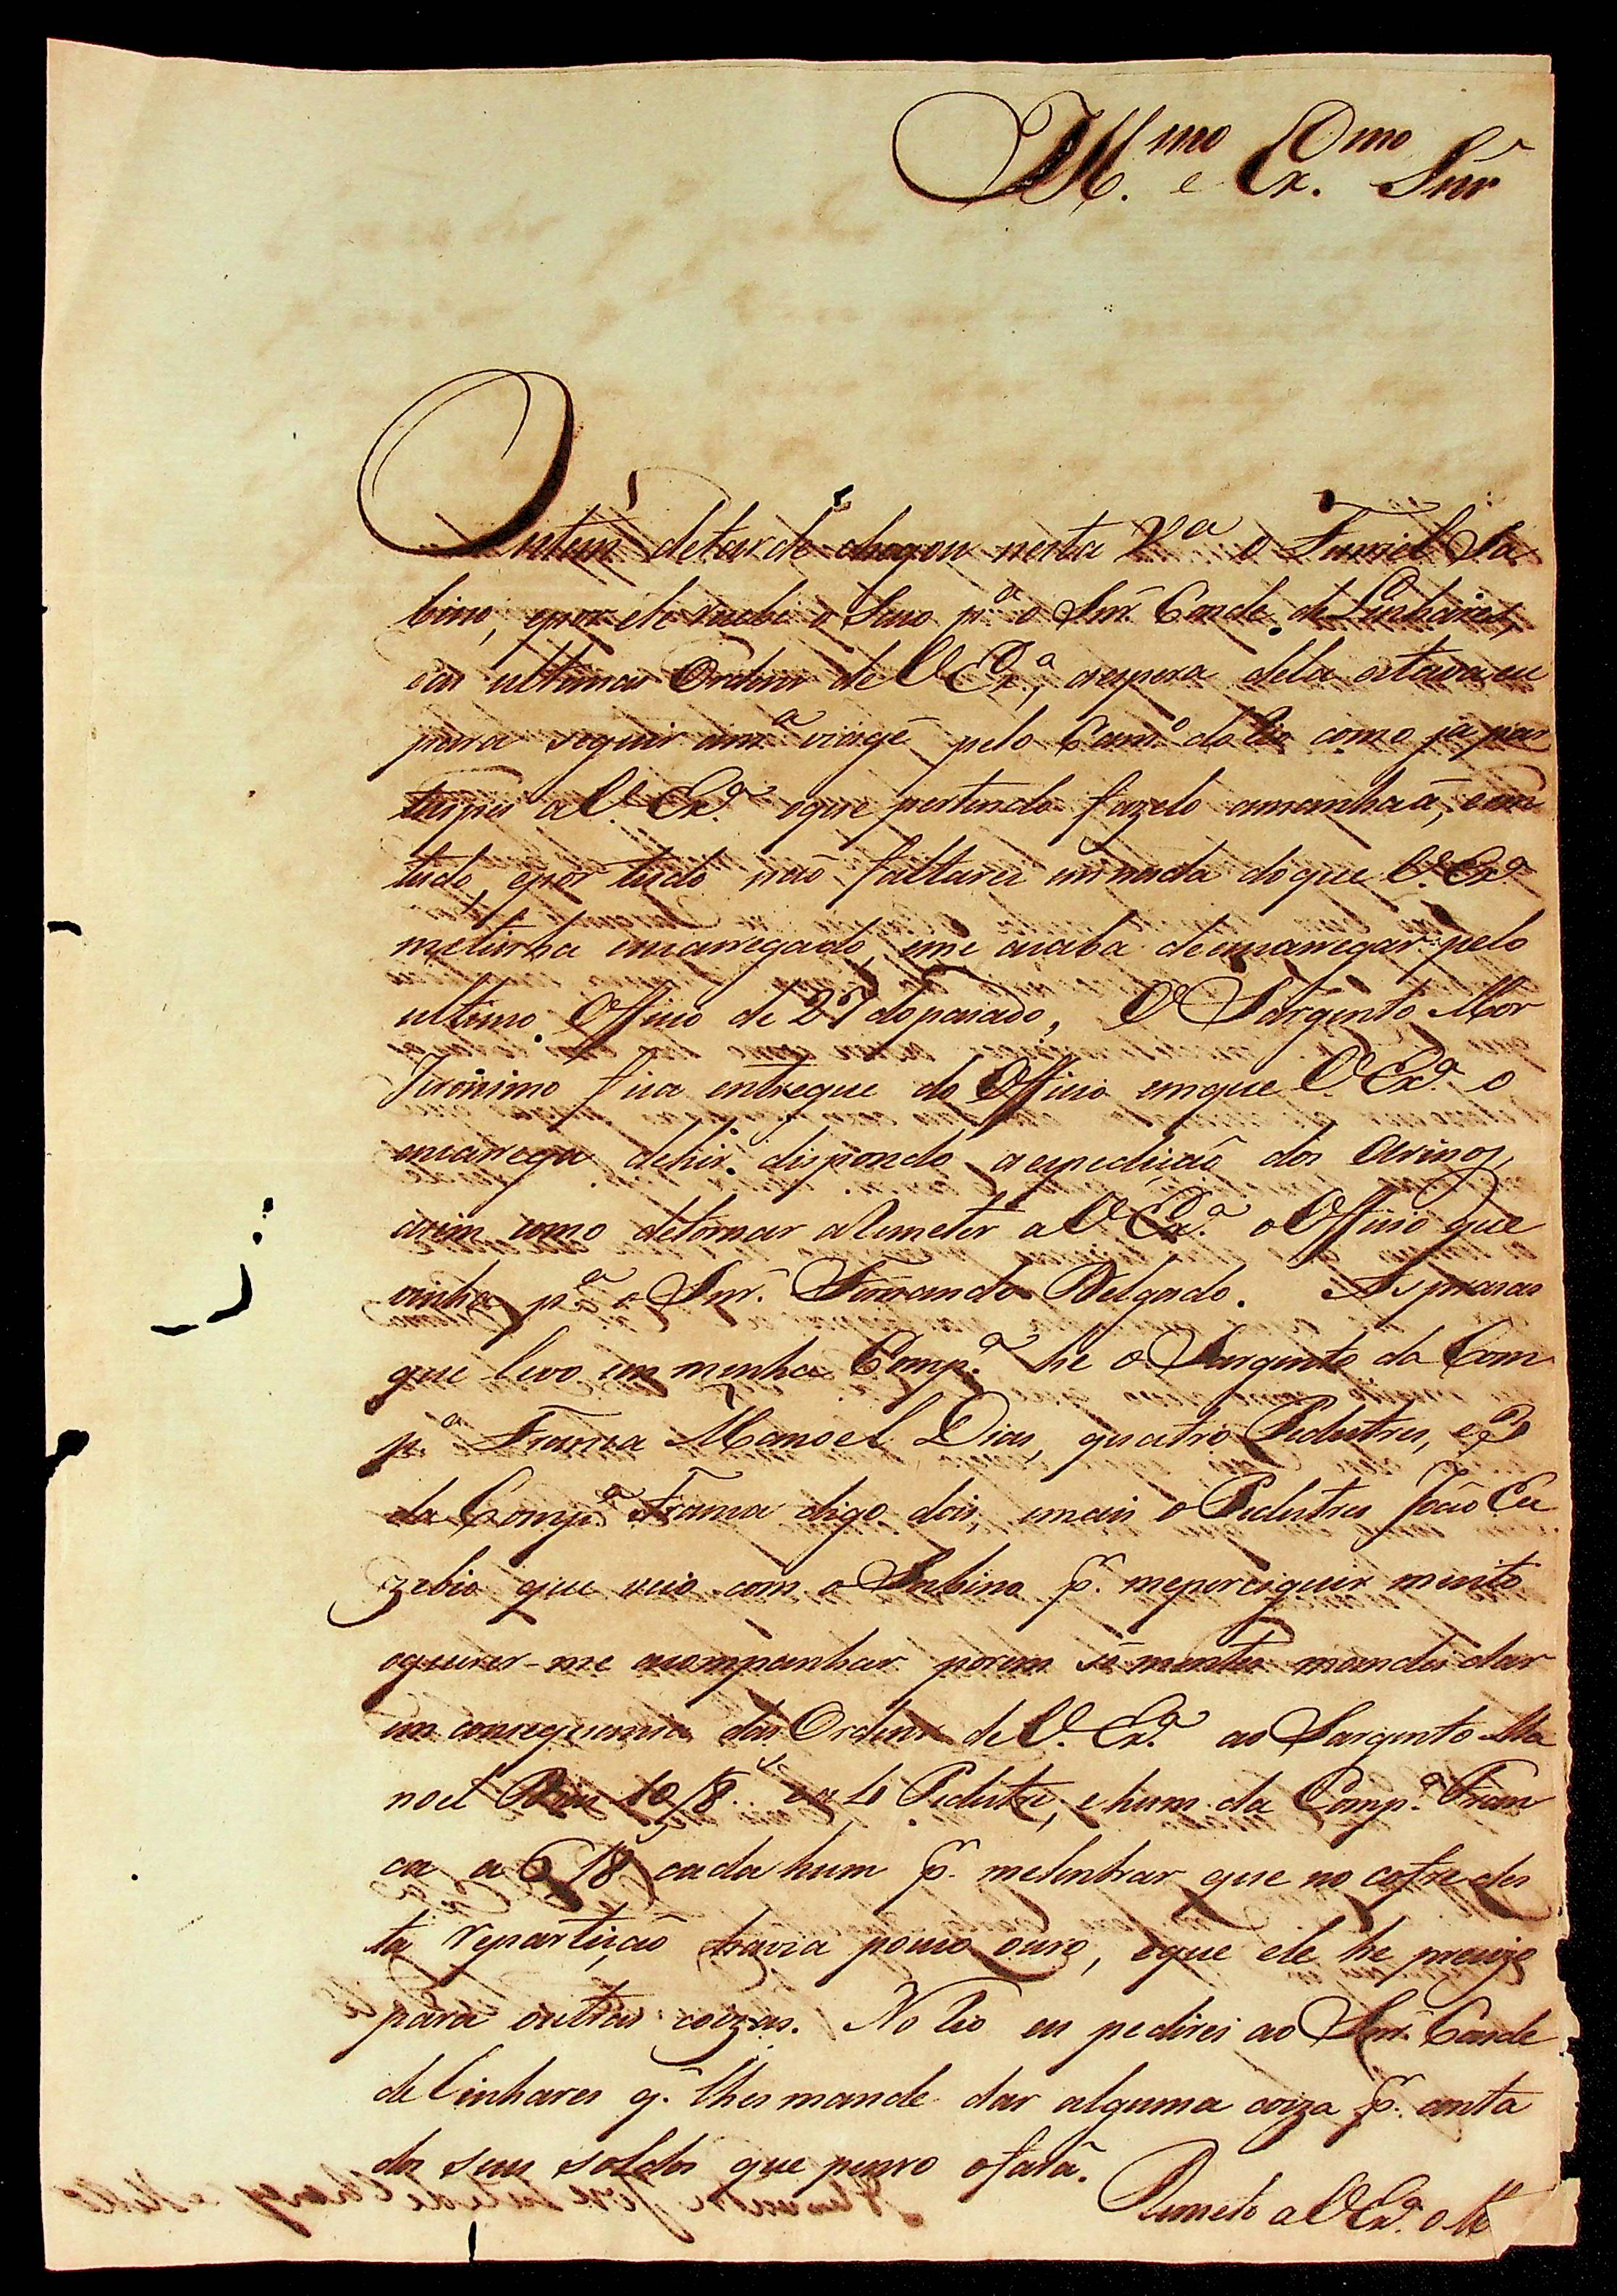 Ill.mo e Ex.mo Snr
Ontem detarde chegou nesta V.a o Furriel Sa
bino, epor ele recebi o Saco p.a o Snr. Conde de Linhares,
eas ultimas Ordens de V. Ex.a, aespera dela estava eu
para seguir a m.a viágē pelo Cam.o do Rio como já par
tecipei a V. Ex.a oque pertendo fazelo amanhaã, com
tudo, epor tudo não faltarei em nada doque V. Ex.a
metinha encarregado, eme acaba deencarregar pelo
ultimo Officio de 27 dopasado, O Sargento Mór
Jeronimo fica entregue do Officio emque V. Ex.a o
encarrega dehir dispondo aexpedição dos Arinos,
asim como detornar aRemeter a V. Ex.a o Officio que
vinha p.a o Snr. Fernando Delgado. As pesoas
que levo em minha Comp.a he o Sargento da Com
p.a Franca Manoel Dias, quatro Pedestres,
da Comp.a Franca digo dois, emais o Pedestres João Eu
zebio que veio com o Sabino p.r meperciguir muito
oquerer-me acompanhar porem sómentes mandei dar
em consequencia das Ordens de V. Ex.a ao Sargento Ma
noel Dias 10/8.as 4 Pedestre, e hum da Comp.a Fran
ca a 6/8 cada hum p.r melembrar que no cofre des
ta repartição havia pouco ouro, eque ele he precizo
para outras coizas. No Rio eu pedirei ao Snr. Conde
de Linhares q. lhes mande dar alguma coiza p.r conta
dos seus soldos que penso ofará.
Remeto a V. Ex.a o M